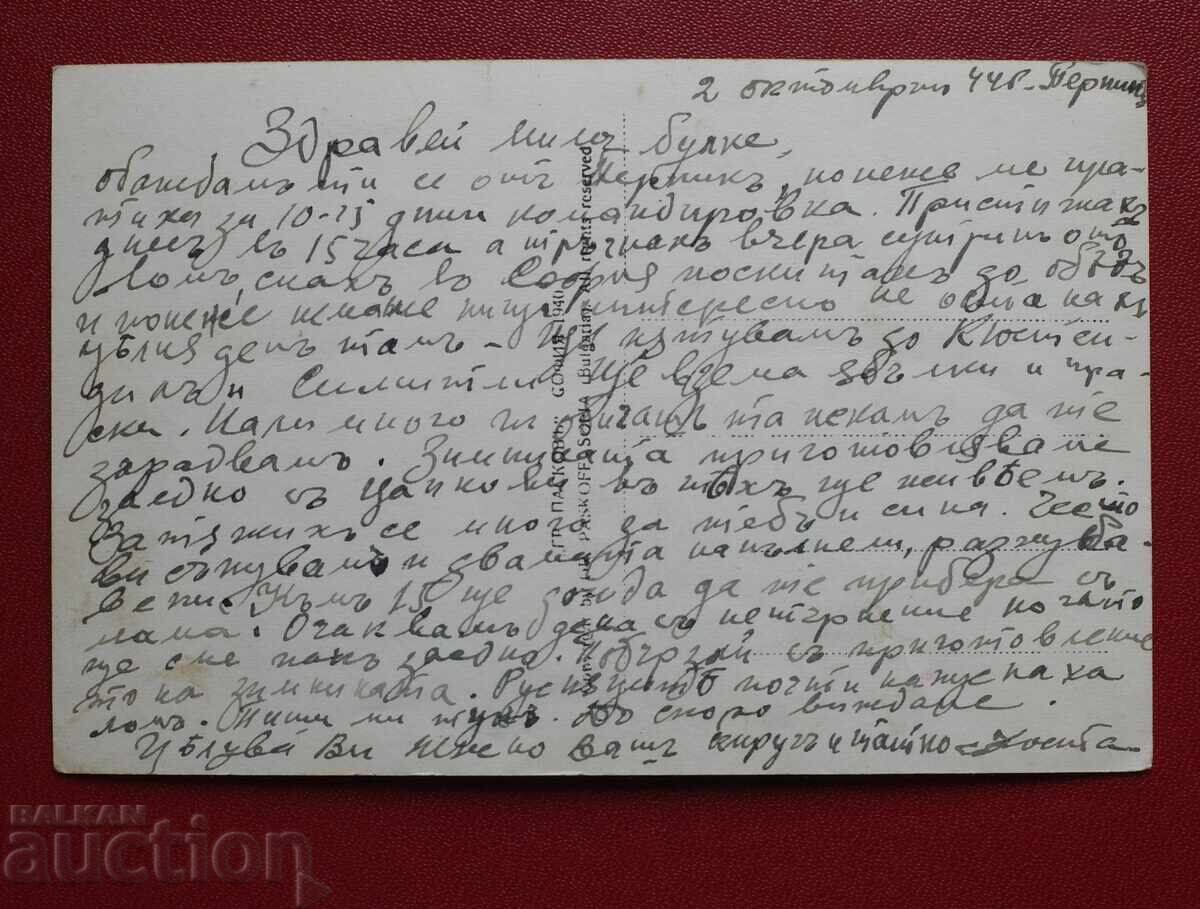 2 октомврий 44г. Перникъ
Здравей мила булке,
обаждамъ ти се отъ Перникъ, понеже ме пра-
тиха за 10-15 дни командировка. Пристигнахъ
днесъ въ 15 часа а тръгнахъ вчера сутринь отъ
Ломъ, спахъ въ София поскитахъ до обѣдъ
и понеже немаше нищо интересно не останахъ
цѣлия день тамъ – Ще пѫтувамъ до Кюстен-
дилъ и Симитли. Ще взема ябълки и пра-
скови. Нали много ги обичашъ та искамъ да те
зарадвамъ. Зимницата приготовлявайте
заедно съ Цанкови въ тѣхъ ще живѣемъ.
Затѫжихъ се много за тебъ и сина. Често
ви сънувамъ и двамата напълнели, разхубa-
вени. Къмъ 15 ще дойда да те прибера съ
мама. Очаквамъ деня съ нетърпение когато
ще сме пакъ заедно. Побързай съ приготовление
то на зимницата. Руснацитѣ почти напуснаха
Ломъ. Пиши ми тукъ. До скоро виждане.
Цѣлува Ви нежно вашъ съпругъ и татко
ГР. ПАСКОВЪ СОФИЯ 1940
PASKOFF SOFIA (Bulgaria) All rights reserved
BALKAN
auction